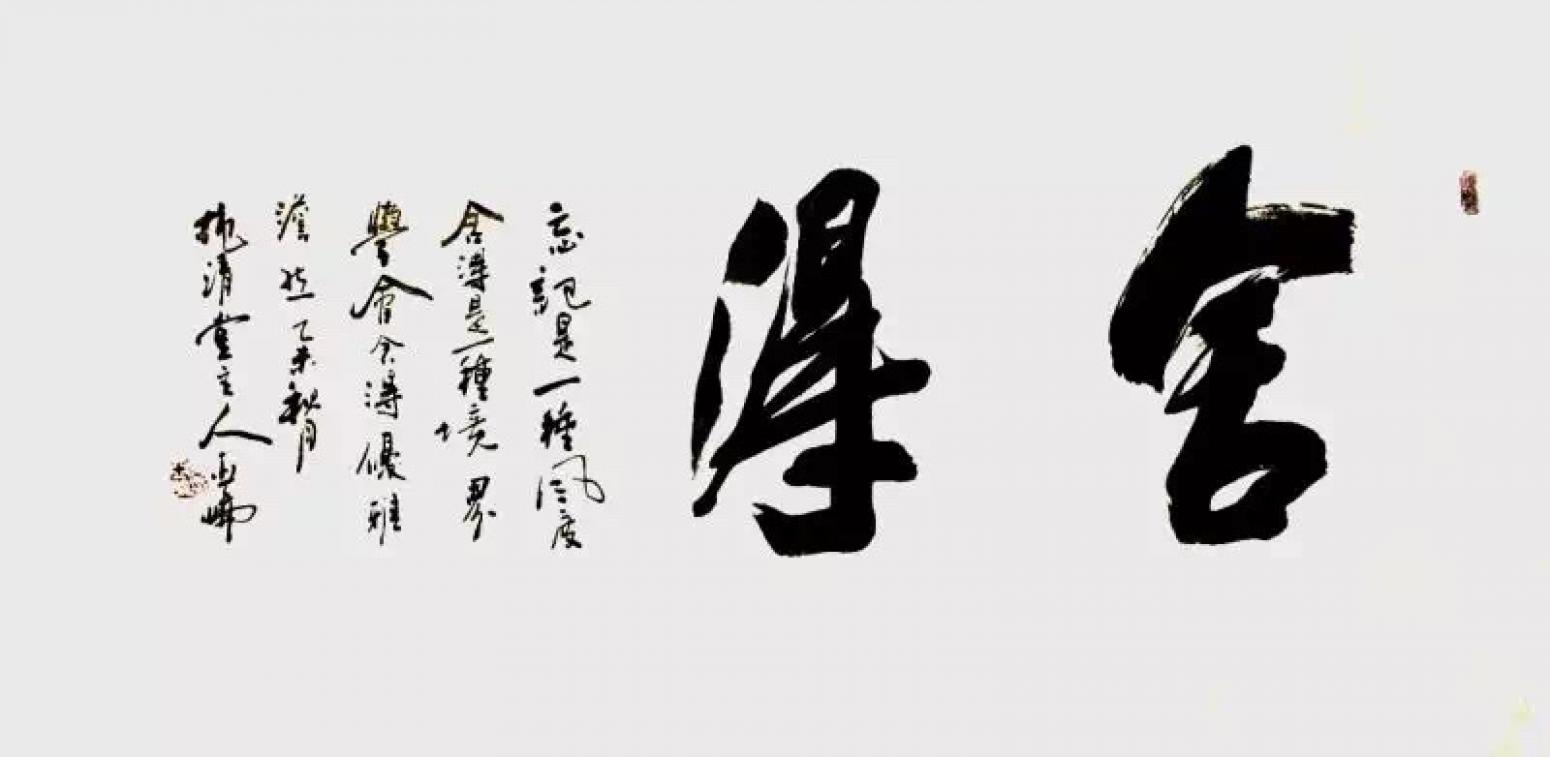 舍得
忘記是一種風度
舍得是一種境界
學會舍得優雅
澹然乙未秋月
清堂主人